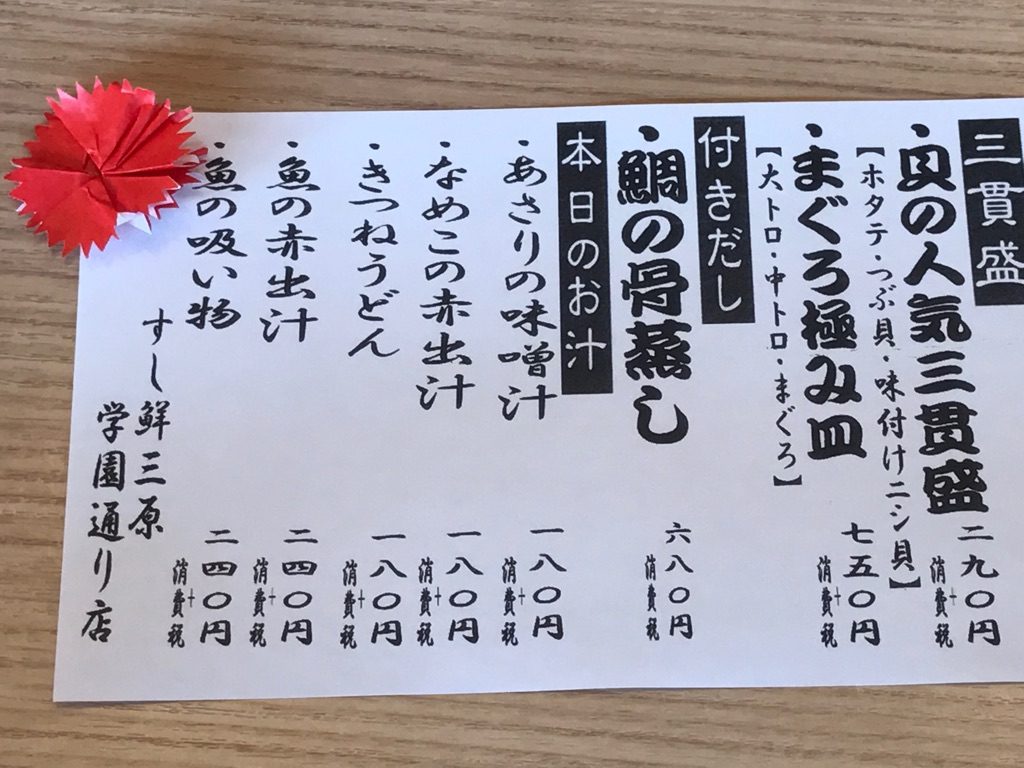 三貫盛
・貝の人気三貫盛 二九〇円+消費税
【ホタテ・つぶ貝・味付けニシ貝】
・まぐろ極み皿 七五〇円+消費税
【大トロ・中トロ・まぐろ】
付きだし
・鯛の骨蒸し 六八〇円消費税
本日のお汁
・あさりの味噌汁 一八〇円+消費税
・なめこの赤出汁 一八〇円+消費税
・きつねうどん 一八〇円+消費税
・魚の赤出汁 二四〇円+消費税
・魚の吸い物 二四〇円+消費税
すし鮮三原
学園通り店